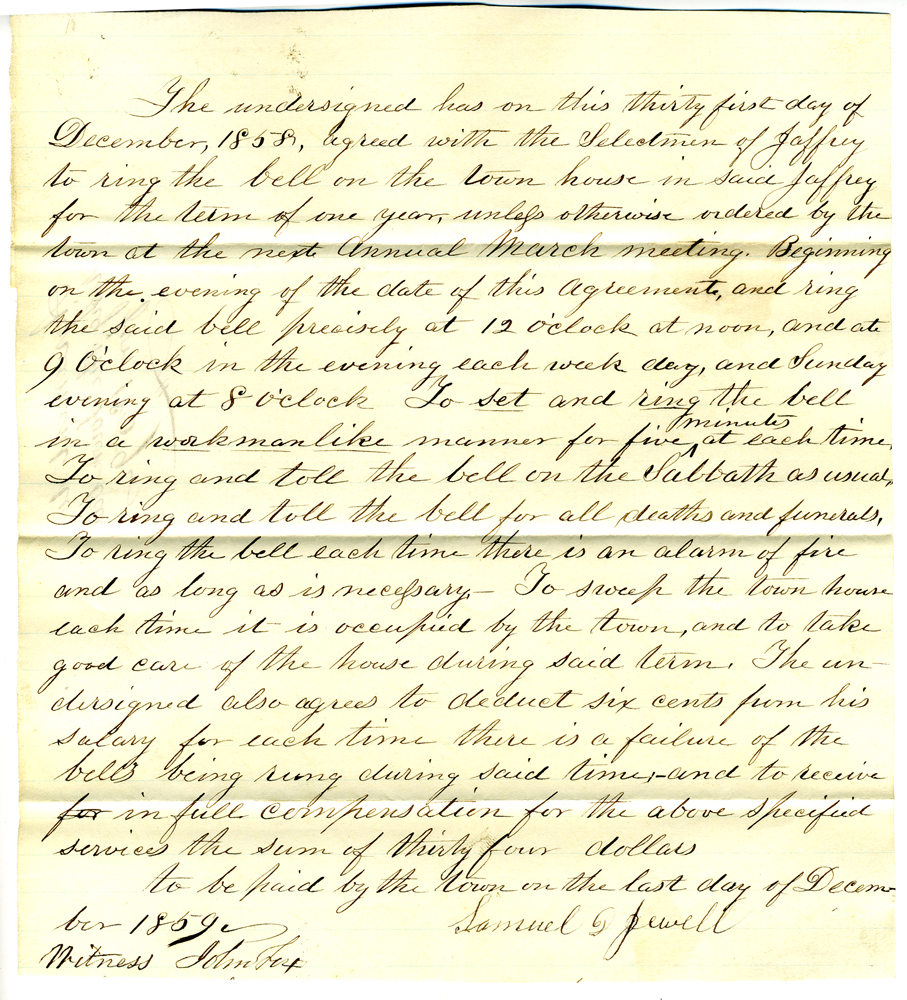 The undersigned has on this thirty first day of
December, 1858, agreed with the Selectmen of Jaffrey
to ring the bell on the town house in said Jaffrey
for the term of one year, unless otherwise ordered by the
town at the next Annual March meeting. Beginning
on the evening of the date of this Agreement, and ring
the said bell precisely at 12 o'clock at noon, and at
9 O'clock in the evening each week day, and Sunday
evening at 8 o'clock To set and ring the bell
in a workmanlike manner for five minutes at each time.
To ring and toll the bell on the Sabbath as usual,
To ring and toll the bell for all deaths and funerals,
To ring the bell each time there is an alarm of fire
and as long as is necessary,- To sweep the town house
each time it is occupied by the town, and to take
good care of the house during said term. The un-
dersigned also agrees to deduct six cents from his
salary for each time there is a failure of the
bell's being rung during said time,-and to receive
for in full compensation for the above specified
services the sum of thirty four dollars
to be paid by the town on the last day of Decem-
ber 1859.
Samuel D Jewell
Witness John Fox